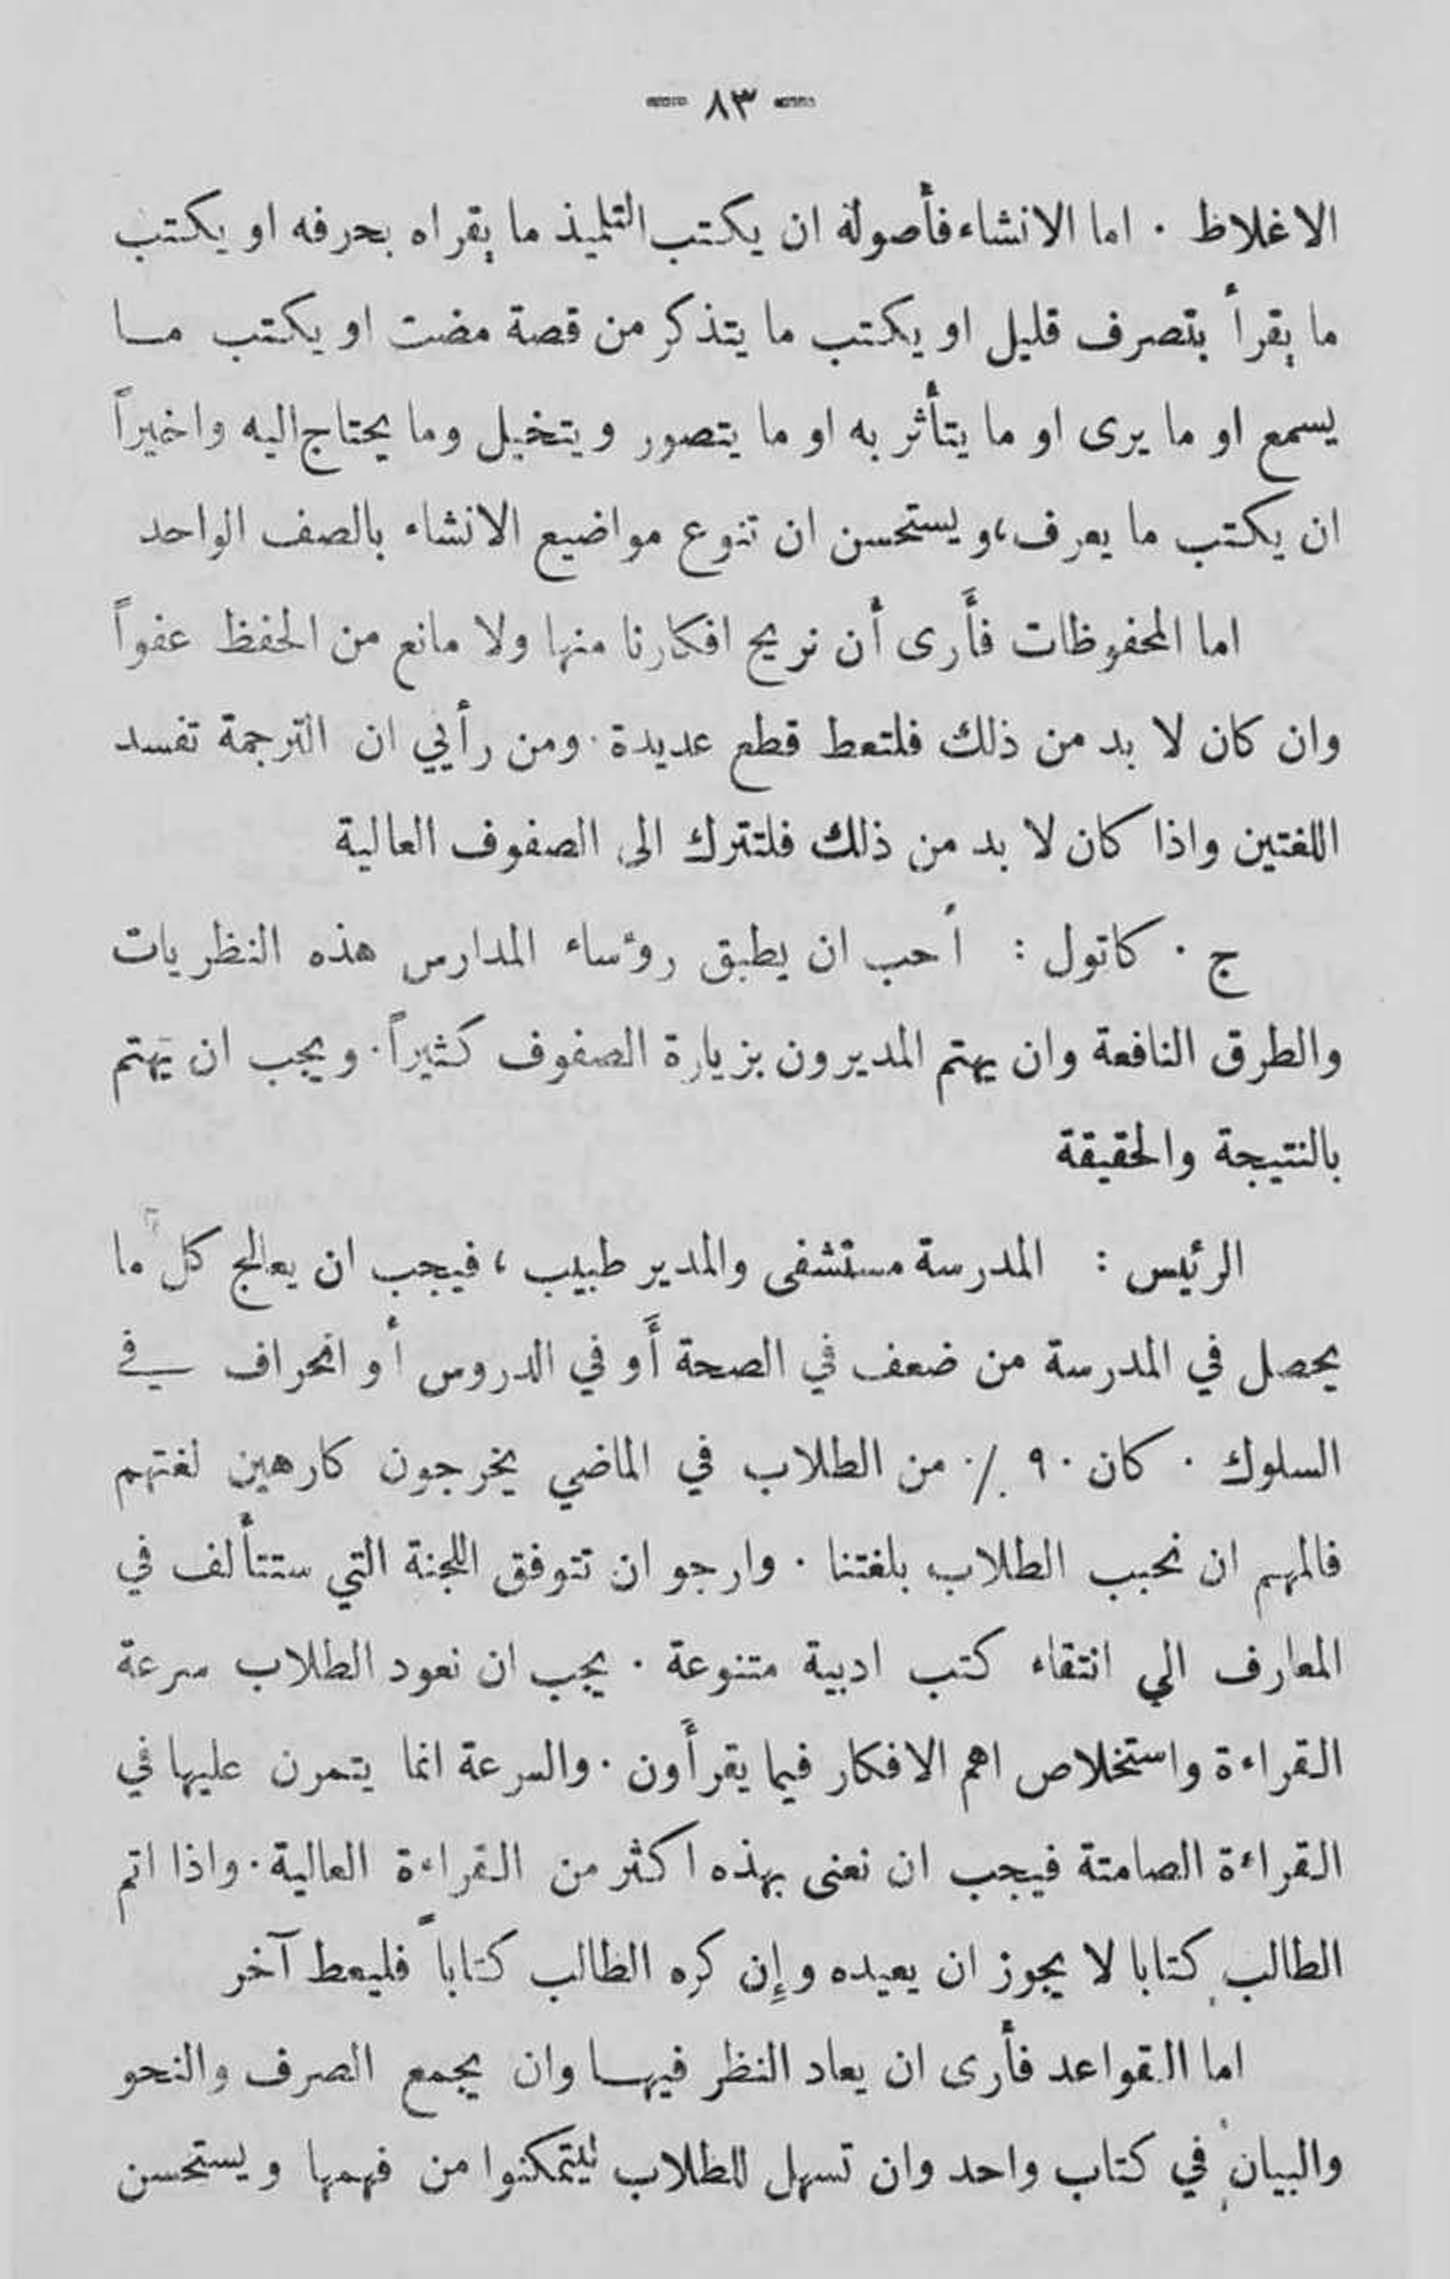 — ٨٣ —
الاغلاظ . اما الانشاء فأصوله ان يكتب التلميذ ما يقراه بحرفه او يكتب
ما يقرأ بتصرف قليل او يكتب ما يتذكر من قصة مضت او يكتب مـا
يسمع او ما يرى او ما يتأثر به او ما يتصور ويتخيل وما يحتاج اليه واخيراً
ان يكتب ما يعرف، ويستحسن ان تنوع مواضيع الانشاء بالصف الواحد
اما المحفوظات فأَرى أن نريح افكارنا منها ولا مانع من الحفظ عفواً
وان كان لا بد من ذلك فلتعط قطع عديدة . ومن رأيي ان الترجمة تفسد
اللغتين واذا كان لا بد من ذلك فلتترك الى الصفوف العالية
ج . كاتول : أحب ان يطبق رؤساء المدارس هذه النظريات
والطرق النافعة وان يهتم المديرون بزيارة الصفوف كثيراً . ويجب ان يَهتم
بالنتيجة والحقيقة
الرئيس : المدرسة مستشفى والمدير طبيب ، فيجب ان يعالج كل ما
يحصل في المدرسة من ضعف في الصحة أَو في الدروس أو انحراف في
السلوك . كان ٩٠ ٪ من الطلاب في الماضي يخرجون كارهين لغتهم
فالمهم ان نحبب الطلاب بلغتنا . وارجو ان تتوفق اللجنة التي ستتألف في
المعارف الي انتقاء كتب ادبية متنوعة . يجب ان نعود الطلاب سرعة
القراءة واستخلاص اهم الافكار فيما يقرأَون . والسرعة انما يتمرن عليها في
القراءة الصامتة فيجب ان نعنى بهذه اكثر من القراءة العالية . واذا اتم
الطالب كتابا لا يجوز ان يعيده وإن كره الطالب كتاباً فليعط آخر
اما القواعد فأرى ان يعاد النظر فيهـا وان يجمع الصرف والنحو
والبيان في كتاب واحد وان تسهل للطلاب ليتمكنوا من فهمها ويستحسن